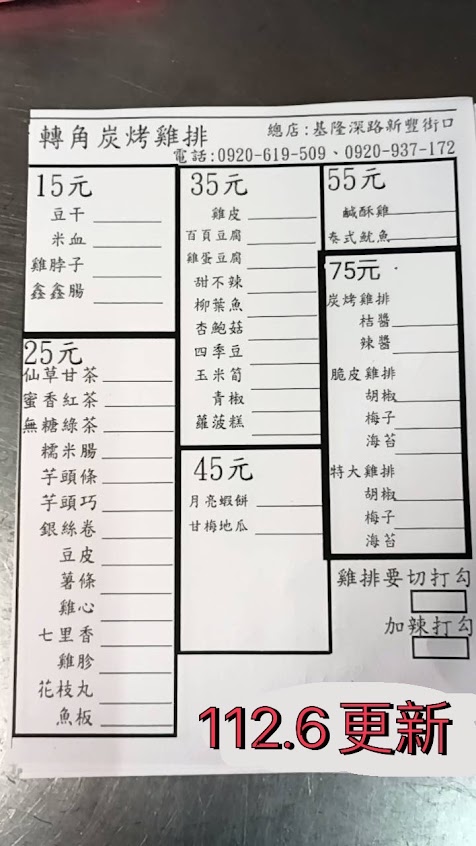 轉角炭烤雞排
總店:基隆深路新豐街口
電話:0920-619-509、0920-937-172
15元
豆干
米血
雞脖子
鑫鑫腸
25元
仙草甘茶
蜜香紅茶
無糖綠茶
糯米腸
芋頭條
芋頭巧
銀絲卷
豆皮
薯條
雞心
七里香
雞胗
花枝丸
魚板
35元
雞皮
百頁豆腐
雞蛋豆腐
甜不辣
柳葉魚
杏鮑菇
四季豆
玉米筍
青椒
蘿菠糕
45元
月亮蝦餅
甘梅地瓜
55元
鹹酥雞
泰式魷魚
75元
炭烤雞排
桔醬
辣醬
脆皮雞排
胡椒
梅子
海苔
特大雞排
胡椒
梅子
海苔
雞排要切打勾
加辣打勾
112.6更新